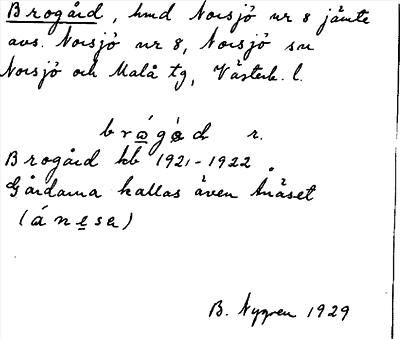 Brogård, hmd Norsjö nr 8 jämte
avs. Norsjö nr 8, Norsjö sn
Norsjö och Malå tg, Västerb. l.
r.
Brogård kb 1921-1922
Gårdarna kallas även Ånäset
B. Nygren 1929